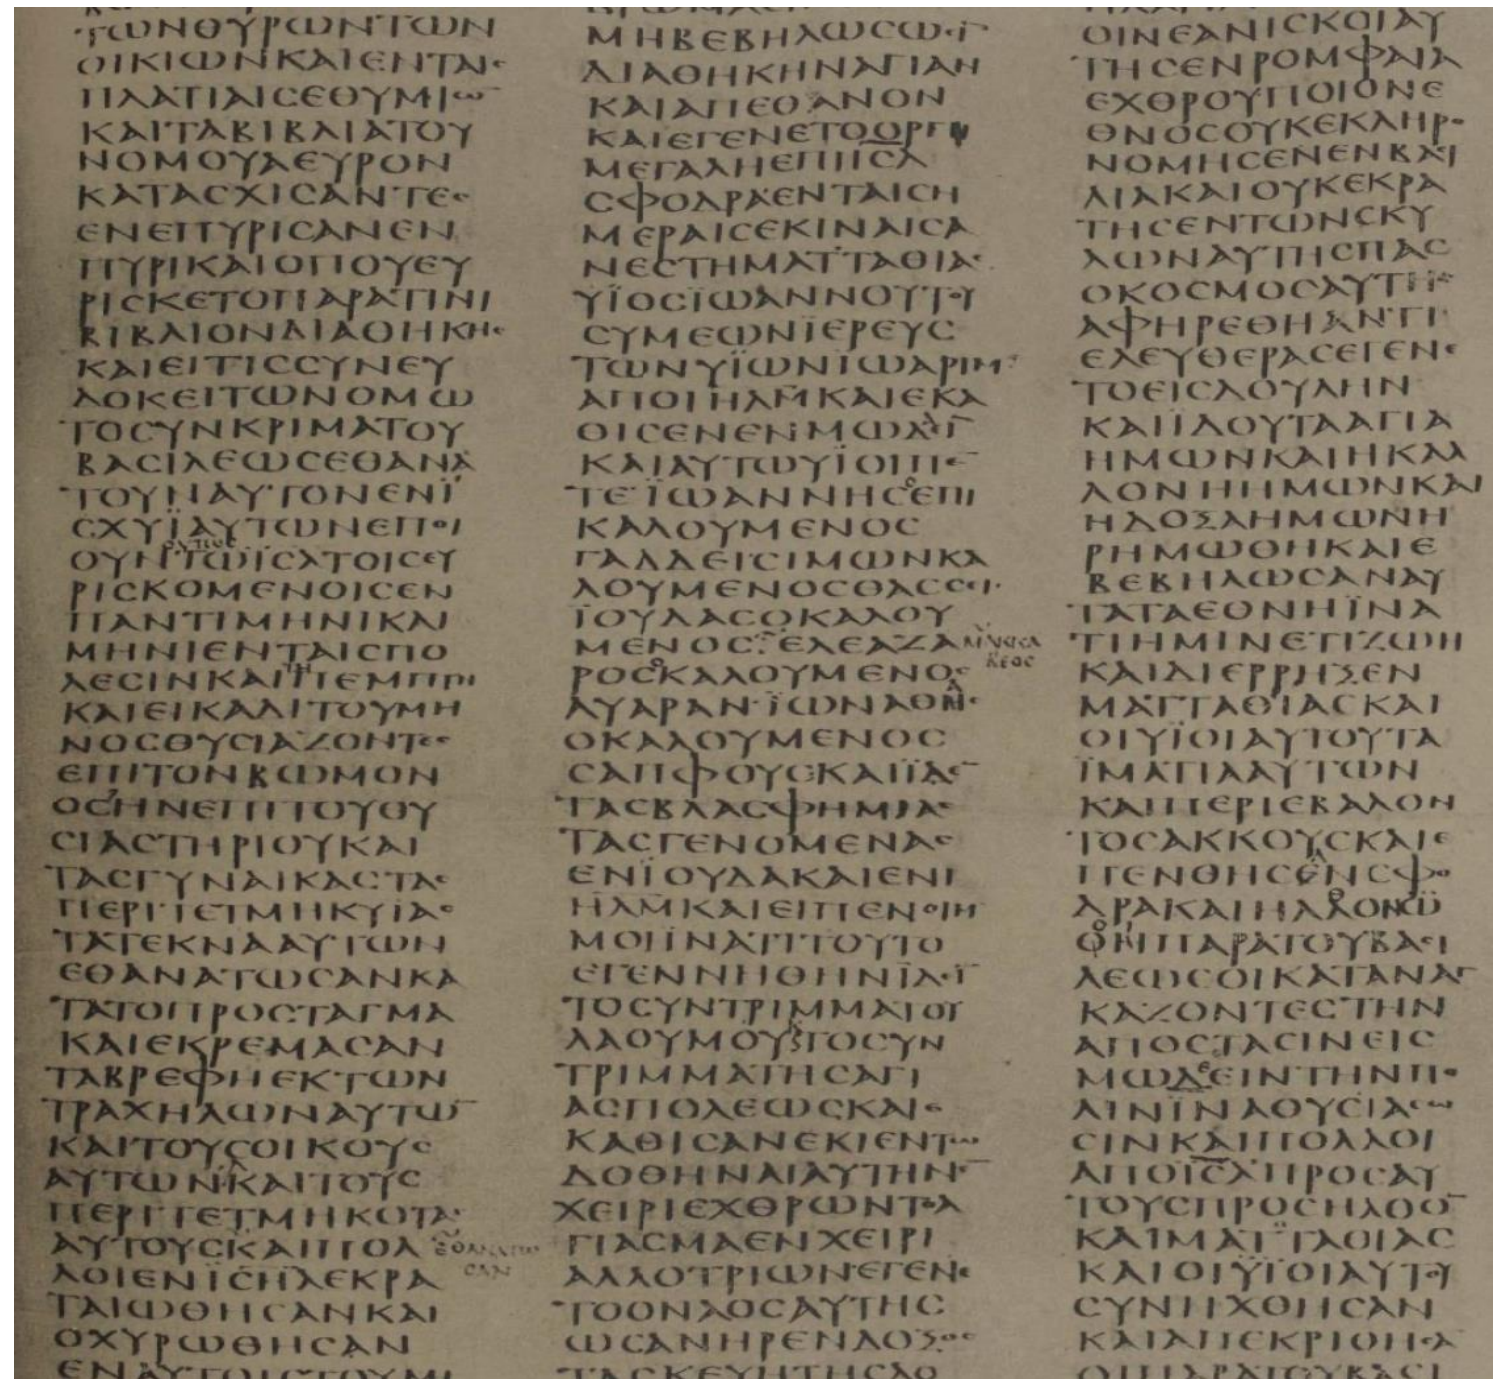 ΤΩΝΘΥΡΩΝΤΩΝ
ΟΙΚΙΩΝΚΑΙΕΝΤΑΙϹ
ΠΛΑΤΙΑΙϹΕΘΥΜΙΩ̅
ΚΑΙΤΑΒΙΒΛΙΑΤΟΥ
ΝΟΜΟΥΑΕΥΡΟΝ
ΚΑΤΑϹΧΙϹΑΝΤΕϹ
ΕΝΕΠΥΡΙϹΑΝΕΝ
ΠΥΡΙΚΑΙΟΠΟΥΕΥ
ΡΙϹΚΕΤΟΠΑΡΑΤΙΝΙ
ΒΙΒΛΙΟΝΔΙΑΘΗΚΗϹ
ΚΑΙΕΙΤΙϹϹΥΝΕΥ
ΔΟΚΕΙΤΩΝΟΜΩ
ΤΟϹΥΝΚΡΙΜΑΤΟΥ
ΒΑϹΙΛΕΩϹΕΘΑΝΑ
ΤΟΥΝΑΥΤΟΝΕΝΪ
ϹΧΥΪΑΥΤΩΝΕΠΟΙ
ΟΥΝΤΩΪϹΑΤΟΙϹΕΥ
ΡΙϹΚΟΜΕΝΟΙϹΕΝ
ΠΑΝΤΙΜΗΝΙΚΑΙ
ΜΗΝΙΕΝΤΑΙϹΠΟ
ΛΕϹΙΝΚΑΙΤΗΠΕΜΠΤΗ
ΚΑΙΕΙΚΑΔΙΤΟΥΜΗ
ΝΟϹΘΥϹΙΑΖΟΝΤΕϹ
ΕΠΙΤΟΝΒΩΜΟΝ
ΟϹΗΝΕΠΙΤΟΥΘΥ
ϹΙΑϹΤΗΡΙΟΥΚΑΙ
ΤΑϹΓΥΝΑΙΚΑϹΤΑϹ
ΠΕΡΙΤΕΤΜΗΚΥΪΑϹ
ΤΑΤΕΚΝΑΑΥΤΩΝ
ΕΘΑΝΑΤΩϹΑΝΚΑ
ΤΑΤΟΠΡΟϹΤΑΓΜΑ
ΚΑΙΕΚΡΕΜΑϹΑΝ
ΤΑΒΡΕΦΗΕΚΤΩΝ
ΤΡΑΧΗΛΩΝΑΥΤΩ̅
ΚΑΙΤΟΥϹΟΙΚΟΥϹ
ΑΥΤΩΝΚΑΙΤΟΥϹ
ΠΕΡΙΤΕΤΜΗΚΟΤΑϹ
ΑΥΤΟΥϹΚΑΙΠΟΛ ΕΘΑΝΑΤΩ
ϹΑΝ
ΛΟΙΕΝΪϹ̅Η̅Λ̅ΕΚΡΑ
ΤΑΙΩΘΗϹΑΝΚΑΙ
ΟΧΥΡΩΘΗϹΑΝ
ΕΝΑΥΤΟΙϹΤΟΥΜΗ
ΜΗΒΕΒΗΛΩϹΩϹΙ̅
ΔΙΑΘΗΚΗΝΑΓΙΑΝ
ΚΑΙΑΠΕΘΑΝΟΝ
ΚΑΙΕΓΕΝΕΤΟΟΡΓΗ
ΜΕΓΑΛΗΕΠΙΙ̅Ϲ̅Λ̅
ϹΦΟΔΡΑΕΝΤΑΙϹΗ
ΜΕΡΑΙϹΕΚΙΝΑΙϹΑ
ΝΕϹΤΗΜΑΤΤΑΘΙΑϹ
ΥΪΟϹΪΩΑΝΝΟΥΤΟΥ
ϹΥΜΕΩΝΪΕΡΕΥϹ
ΤΩΝΥΪΩΝΪΩΑΡΙΜ
ΑΠΟΙΗΛΜ̅ΚΑΙΕΚΑ
ΟΙϹΕΝΕΝΜΩΔΪ̅
ΚΑΙΑΥΤΩΥΪΟΙΠΕ̅
ΤΕΪΩΑΝΝΗϹΟΕΠΙ
ΚΑΛΟΥΜΕΝΟϹ
ΓΑΔΔΕΙϹΙΜΩΝΚΑ
ΛΟΥΜΕΝΟϹΘΑϹϹΕΙϹ
ΪΟΥΔΑϹΟΚΑΛΟΥ
ΜΕΝΟϹΕΛΕΑΖΑ ΜΑΚΚΑ
ΒΕΟϹ
ΡΟϹΟΚΑΛΟΥΜΕΝΟϹ
ΑΥΑΡΑΝΪΩΝΑΘΗϹ
ΟΚΑΛΟΥΜΕΝΟϹ
ϹΑΠΦΟΥϹΚΑΙΪΔΕ̅
ΤΑϹΒΛΑϹΦΗΜΙΑϹ
ΤΑϹΓΕΝΟΜΕΝΑϹ
ΕΝΪΟΥΔΑΚΑΙΕΝΙ
ΗΛΜ̅ΚΑΙΕΙΠΕΝΟΙΗ
ΜΟΙΪΝΑΤΙΤΟΥΤΟ
ΕΓΕΝΝΗΘΗΝΪΔΙ̅
ΤΟϹΥΝΤΡΙΜΜΑΤΟΥ
ΛΑΟΥΜΟΥΚΤΟϹΥΝ
ΤΡΙΜΜΑΤΗϹΑΓΙ
ΑϹΠΟΛΕΩϹΚΑΙΕ
ΚΑΘΙϹΑΝΕΚΙΕΝΤΩ
ΔΟΘΗΝΑΙΑΥΤΗΝΕ̅
ΧΕΙΡΙΕΧΘΡΩΝΤΟΑ
ΓΙΑϹΜΑΕΝΧΕΙΡΙ
ΑΛΛΟΤΡΙΩΝΕΓΕΝΕ
ΤΟΟΝΑΟϹΑΥΤΗϹ
ΩϹΑΝΗΡΕΝΔΟΞΟϹ
ΤΑϹΚΕΥΗΤΗϹΔΟ
ΟΙΝΕΑΝΙϹΚΟΙΑΥ
ΤΗϹΕΝΡΟΜΦΑΙΑ
ΕΧΘΡΟΥΠΟΙΟΝΕ
ΘΝΟϹΟΥΚΕΚΛΗΡΟ
ΝΟΜΗϹΕΝΕΝΒΑϹΙ
ΛΙΑΚΑΙΟΥΚΕΚΡΑ
ΤΗϹΕΝΤΩΝϹΚΥ
ΛΩΝΑΥΤΗϹΠΑϹ
ΟΚΟϹΜΟϹΑΥΤΗϹ
ΑΦΗΡΕΘΗΑΝΤΙ
ΕΛΕΥΘΕΡΑϹΕΓΕΝΕ
ΤΟΕΙϹΔΟΥΛΗΝ
ΚΑΙΪΔΟΥΤΑΑΓΙΑ
ΗΜΩΝΚΑΙΗΚΑΛ
ΛΟΝΗΗΜΩΝΚΑΙ
ΗΔΟΞΑΗΜΩΝΗ
ΡΗΜΩΘΗΚΑΙΕ
ΒΕΒΗΛΩϹΑΝΑΥ
ΤΑΤΑΕΘΝΗΪΝΑ
ΤΙΗΜΙΝΕΤΙΖΩΗ
ΚΑΙΔΙΕΡΡΗΞΕΝ
ΜΑΤΤΑΘΙΑϹΚΑΙ
ΟΙΥΪΟΙΑΥΤΟΥΤΑ
ΪΜΑΤΙΑΑΥΤΩΝ
ΚΑΙΠΕΡΙΕΒΑΛΟΝ
ΤΟϹΑΚΚΟΥϹΚΑΙΕ
ΠΕΝΘΗϹΕΝϹΦΟ
ΔΡΑΚΑΙΗΛΘΟΝΟΪ
ΟΙΠΑΡΑΤΟΥΒΑϹΙ
ΛΕΩϹΟΙΚΑΤΑΝΑΓ
ΚΑΖΟΝΤΕϹΤΗΝ
ΑΠΟϹΤΑϹΙΝΕΙϹ
ΜΩΔΕΕΙΝΤΗΝΠΟ
ΛΙΝΪΝΑΘΥϹΙΑϹΩ
ϹΙΝΚΑΙΠΟΛΛΟΙ
ΑΠΟΪ̅Ϲ̅Λ̅ΠΡΟϹΑΥ
ΤΟΥϹΠΡΟϹΗΛΘΟ̅
ΚΑΙΜΑΤΤΑΘΙΑϹ
ΚΑΙΟΙΥΪΟΙΑΥΤΟΥ
ϹΥΝΗΧΘΗϹΑΝ
ΚΑΙΑΠΕΚΡΙΘΗϹΑ
ΟΙΠΑΡΑΤΟΥΒΑϹΙ